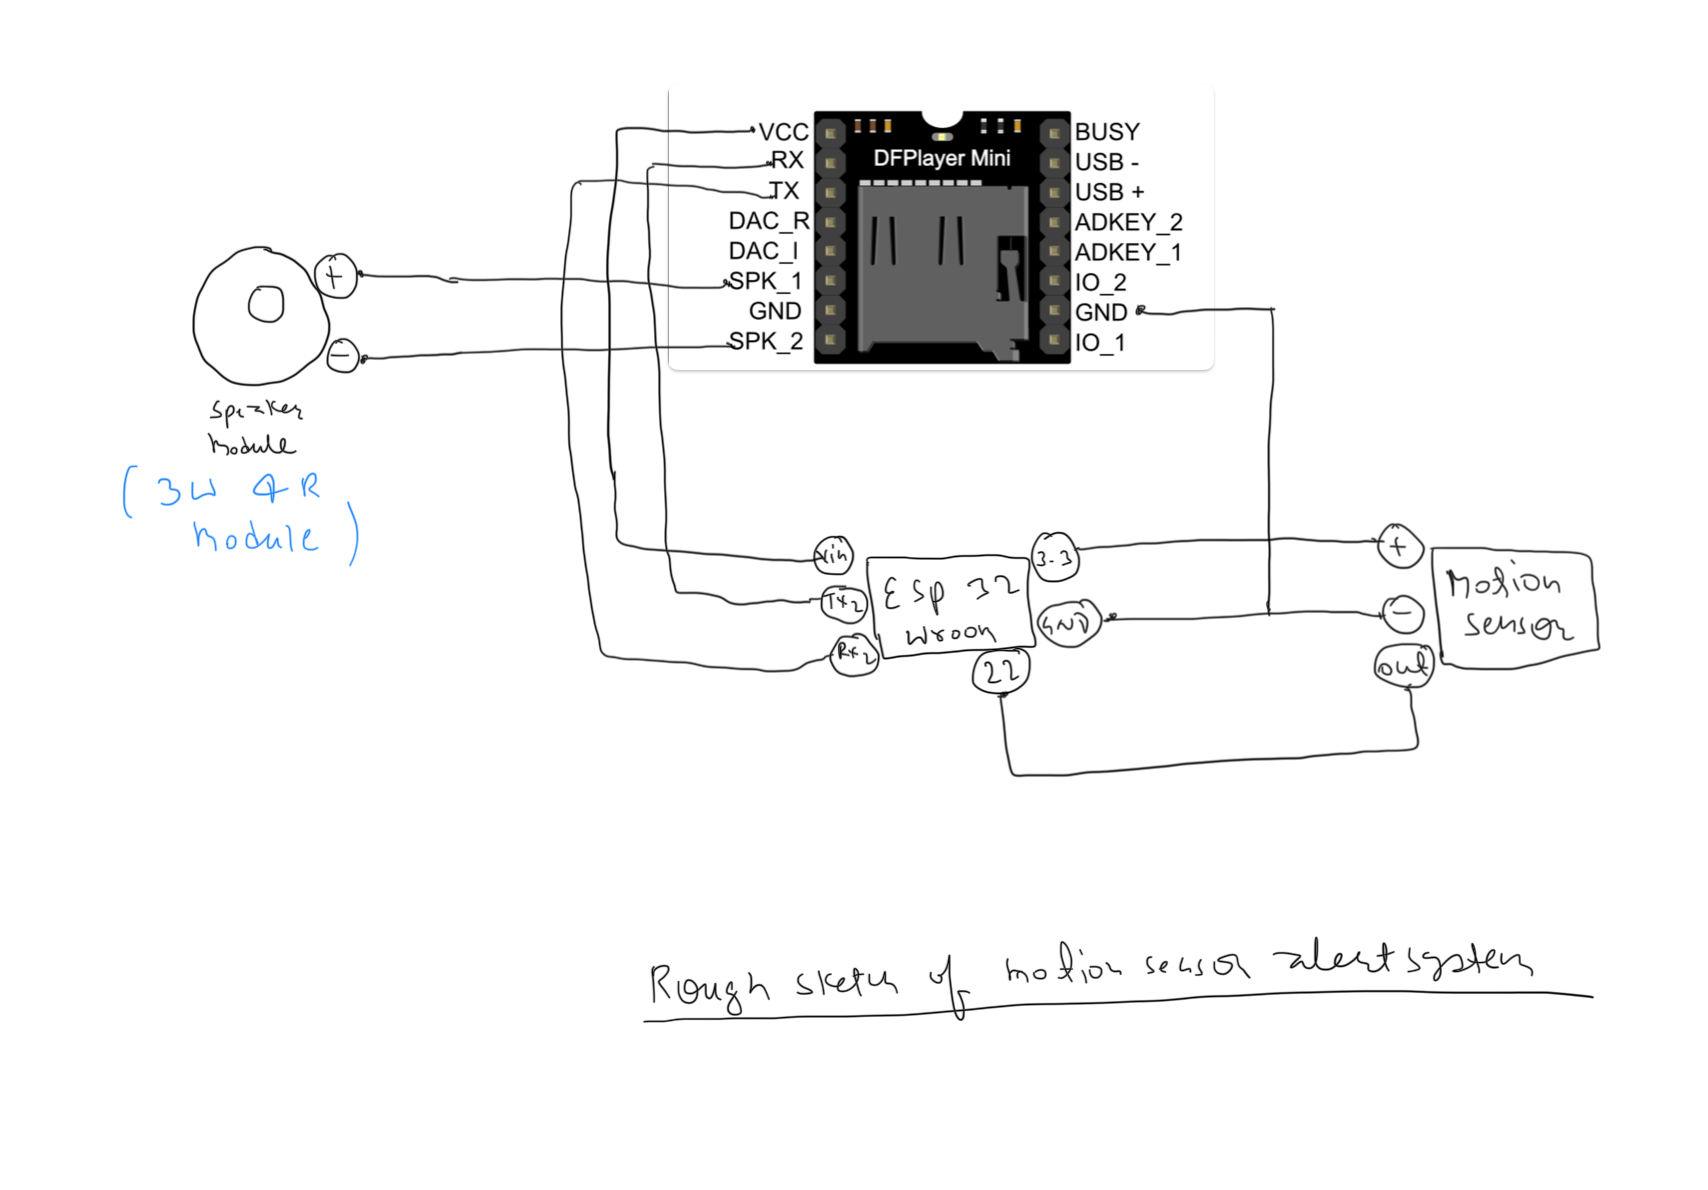 VCC
RX
TX
DAC_R
DAC_I
SPK_1
GND
SPK_2
DFPlayer Mini
BUSY
USB -
USB +
ADKEY_2
ADKEY_1
IO_2
GND
IO_1
+
−
Speaker
Module
(3W 4R
Module)
Vin
TX2
RX2
ESP 32
Wroom
3.3
GND
22
+
−
out
Motion
sensor
Rough sketch of motion sensor alert system